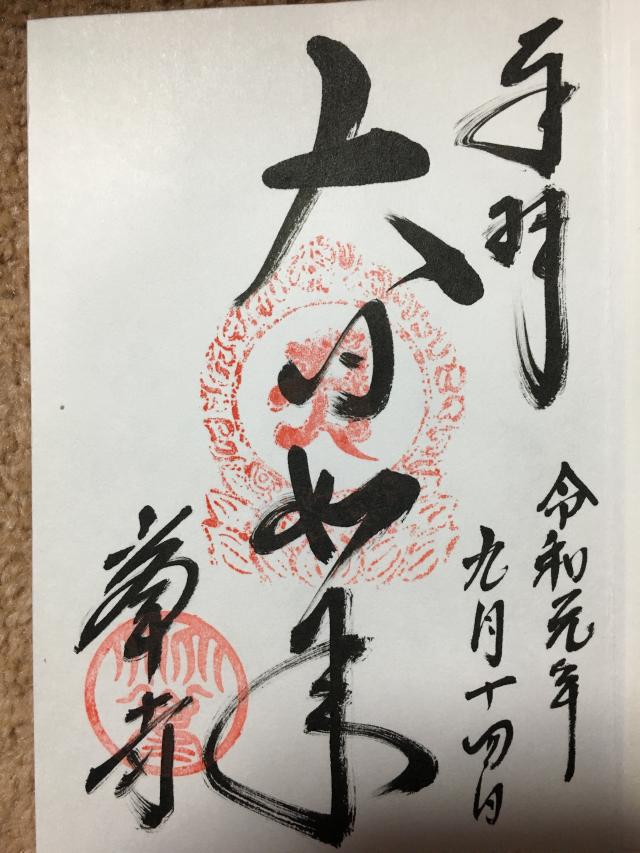 奉拝
令和元年
九月十四日
大日如来